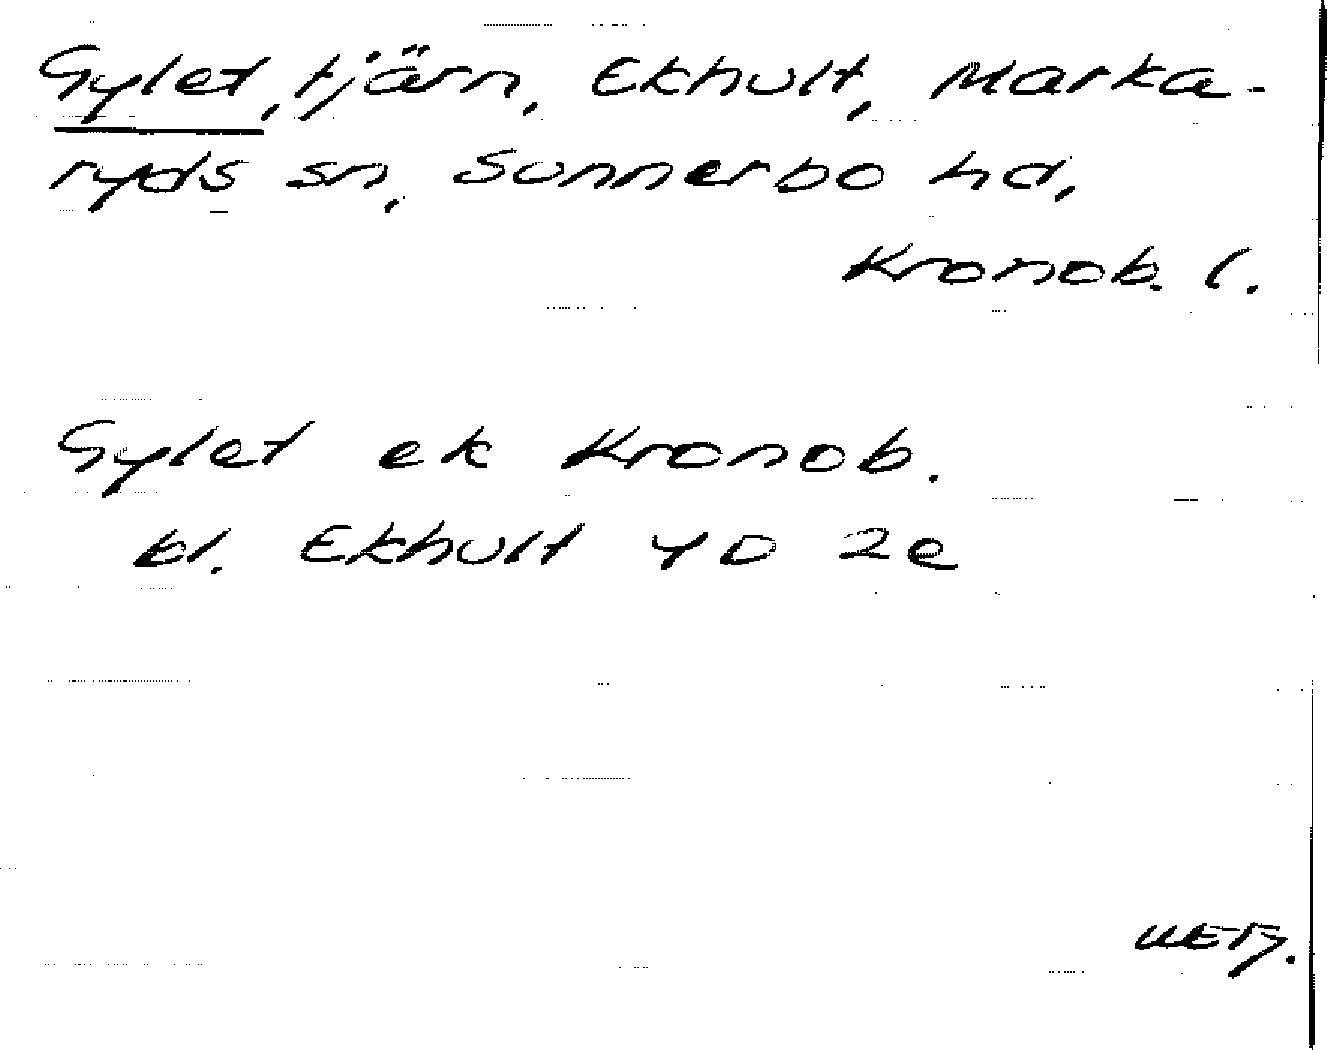 Gylet, tjärn, Ekhult, Marka-
ryds sn, Sunnerbo hd,
Kronob. l.
Gylet ek Kronob.
bl. Ekhult 4D 2e